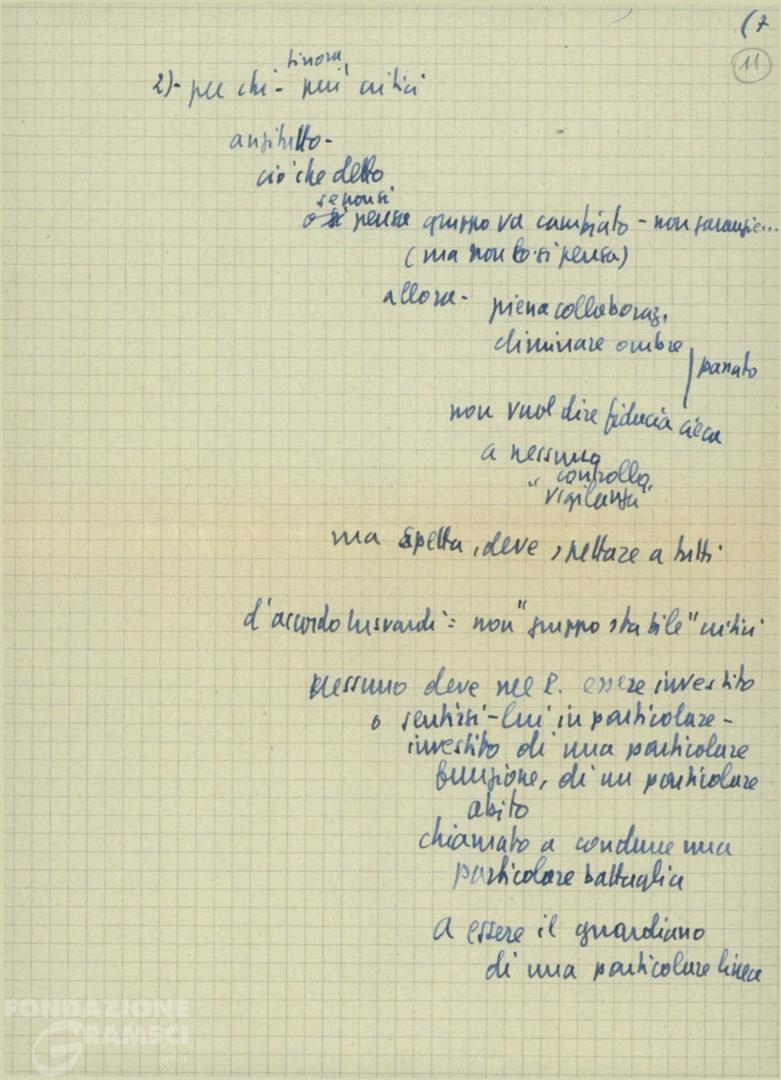 (7
11
finora
2)- per chi - più critici
anzitutto -
ciò che detto
se non si
o si pensa gruppo va cambiato - non garanzie...
(ma non lo si pensa)
allora - piena collaboraz.
eliminare ombre
passato
non vuol dire fiducia cieca
a nessuno
controllo,
"vigilanza"
ma spetta, deve spettare a tutti
d'accordo Lusvardi: non "gruppo stabile" critici
Nessuno deve nel P. essere investito
o sentirsi - lui in particolare -
investito di una particolare
funzione, di un particolare
abito
chiamato a condurre una
particolare battaglia
a essere il guardiano
di una particolare linea
FONDAZIONE
GRAMSCI